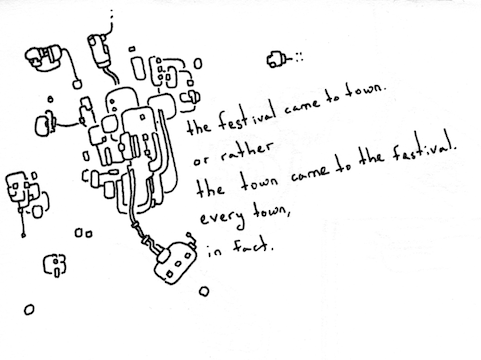 the festival came to town.
or rather
the town came to the festival.
every town,
in fact.